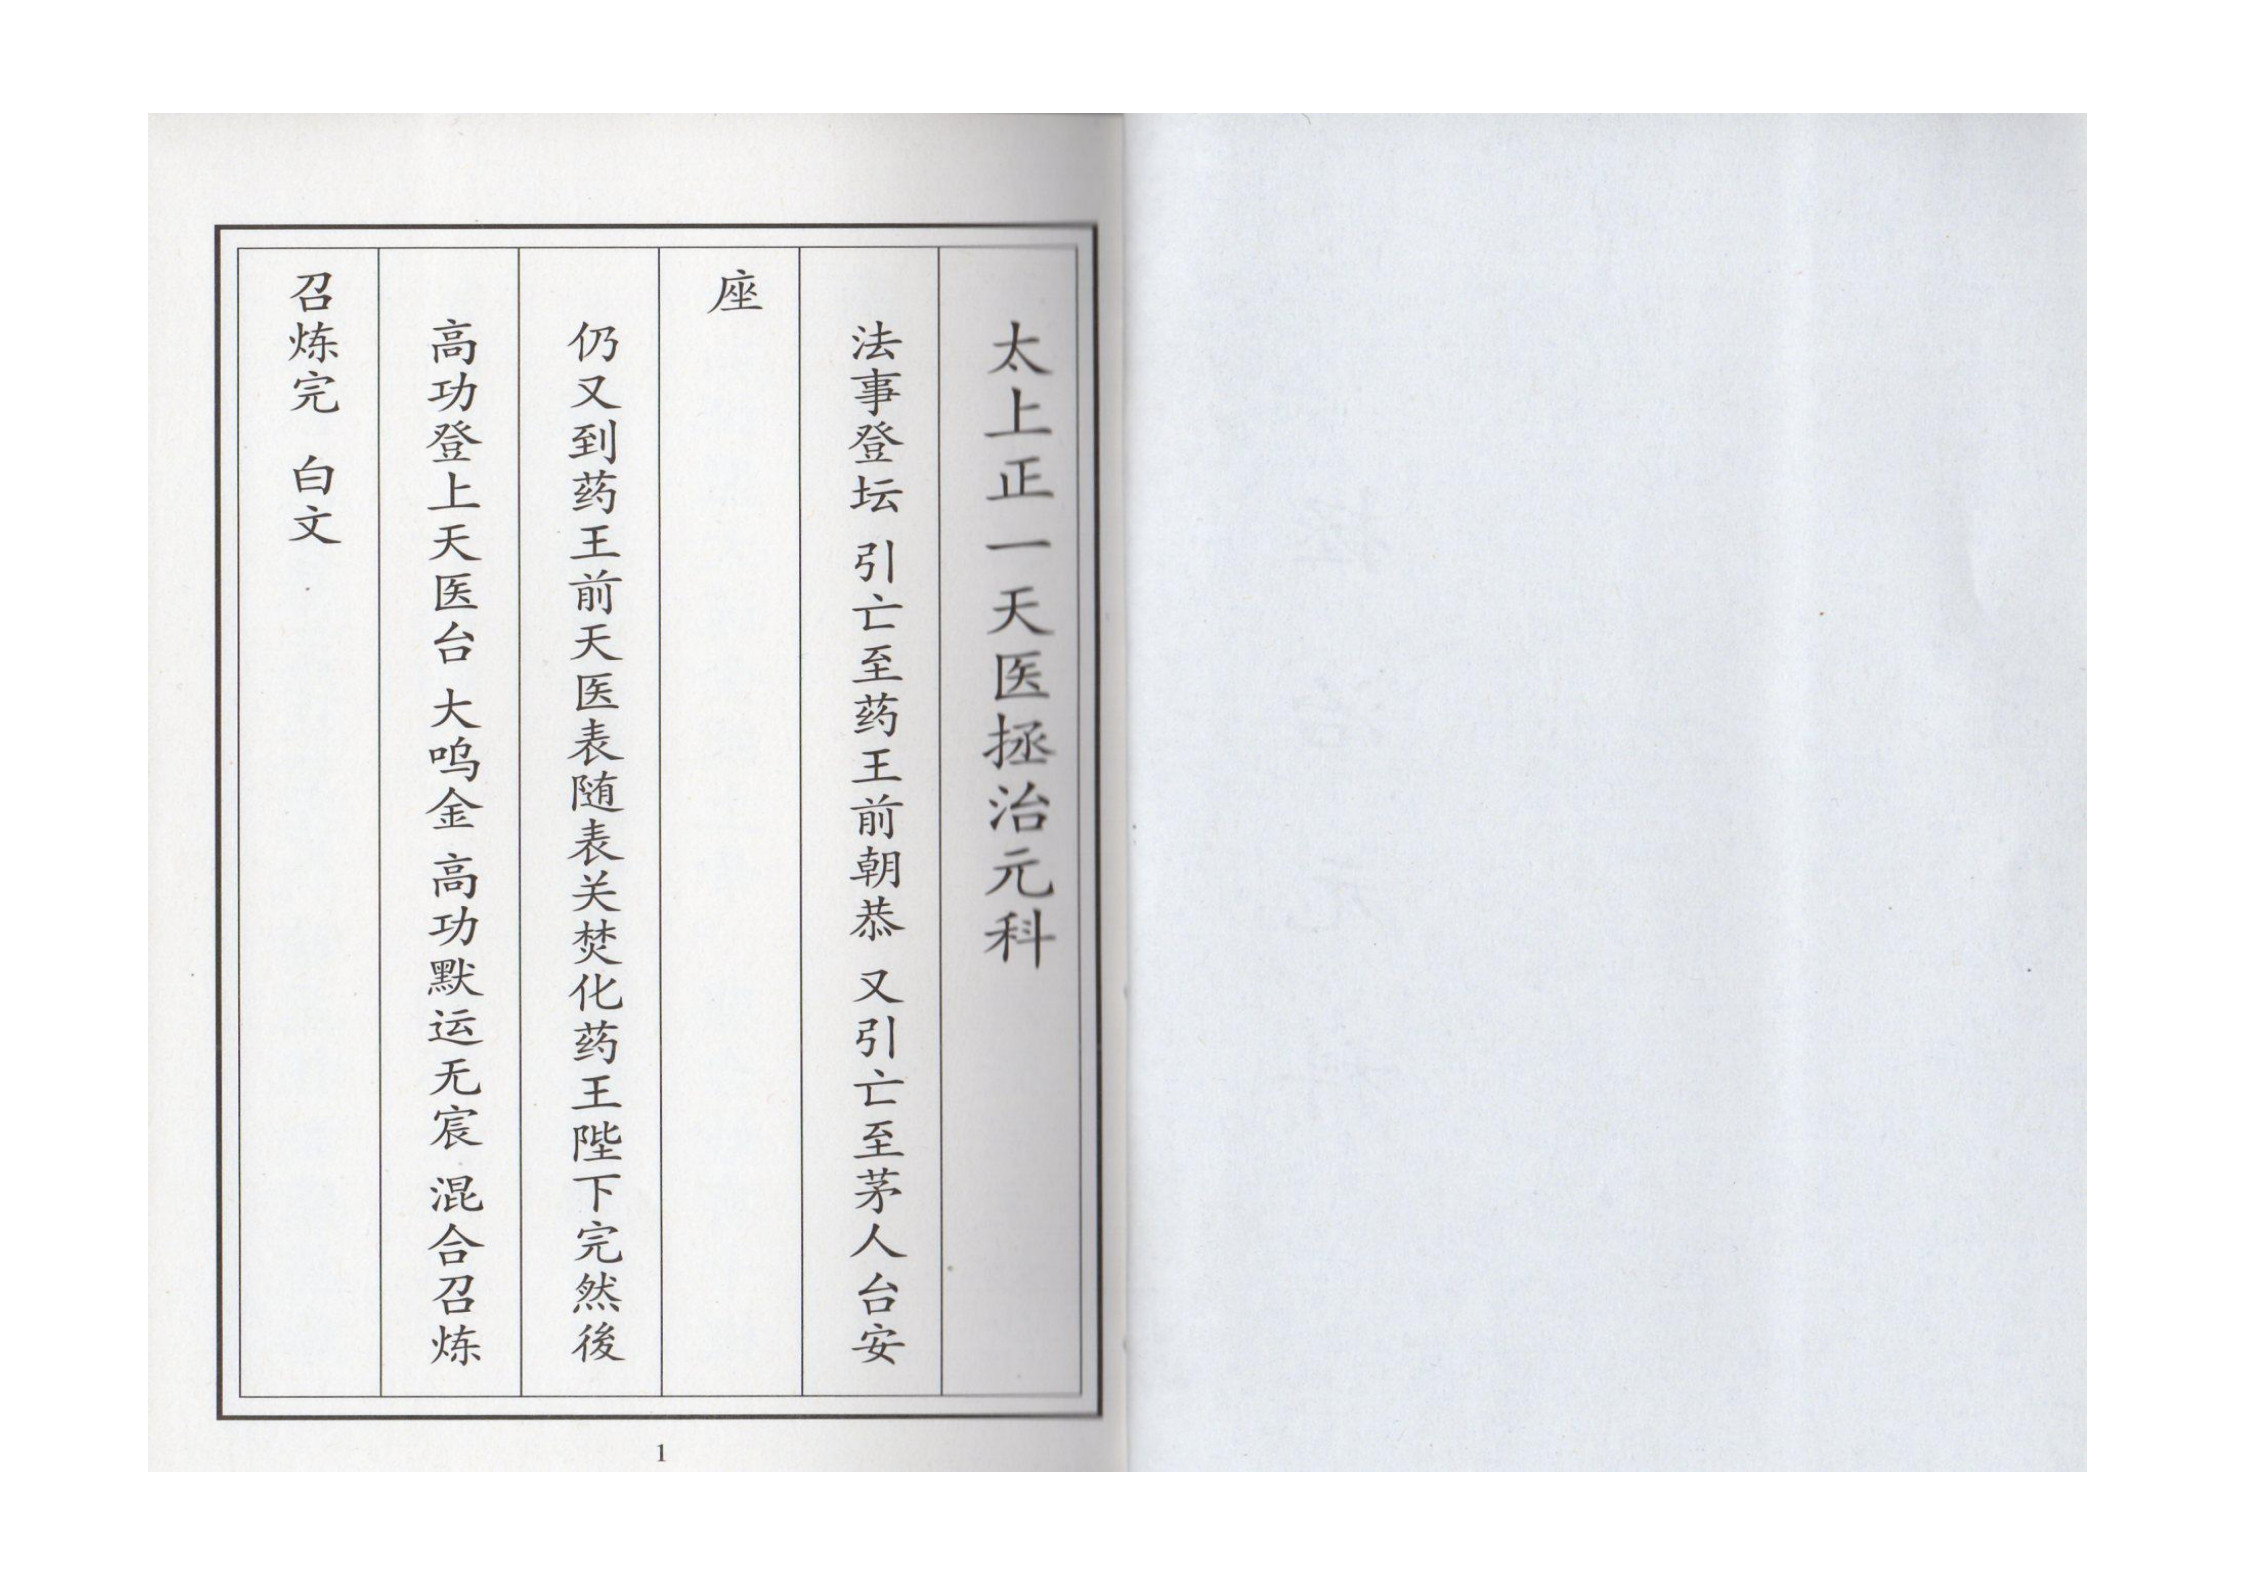 太上正一天医拯治元科
法事登坛 引亡至药王前朝恭 又引亡至茅人台安
座
仍又到药王前天医表随表关焚化药王陛下完然後
高功登上天医台 大呜金 高功默运无宸 混合召炼
召炼完 白文
1